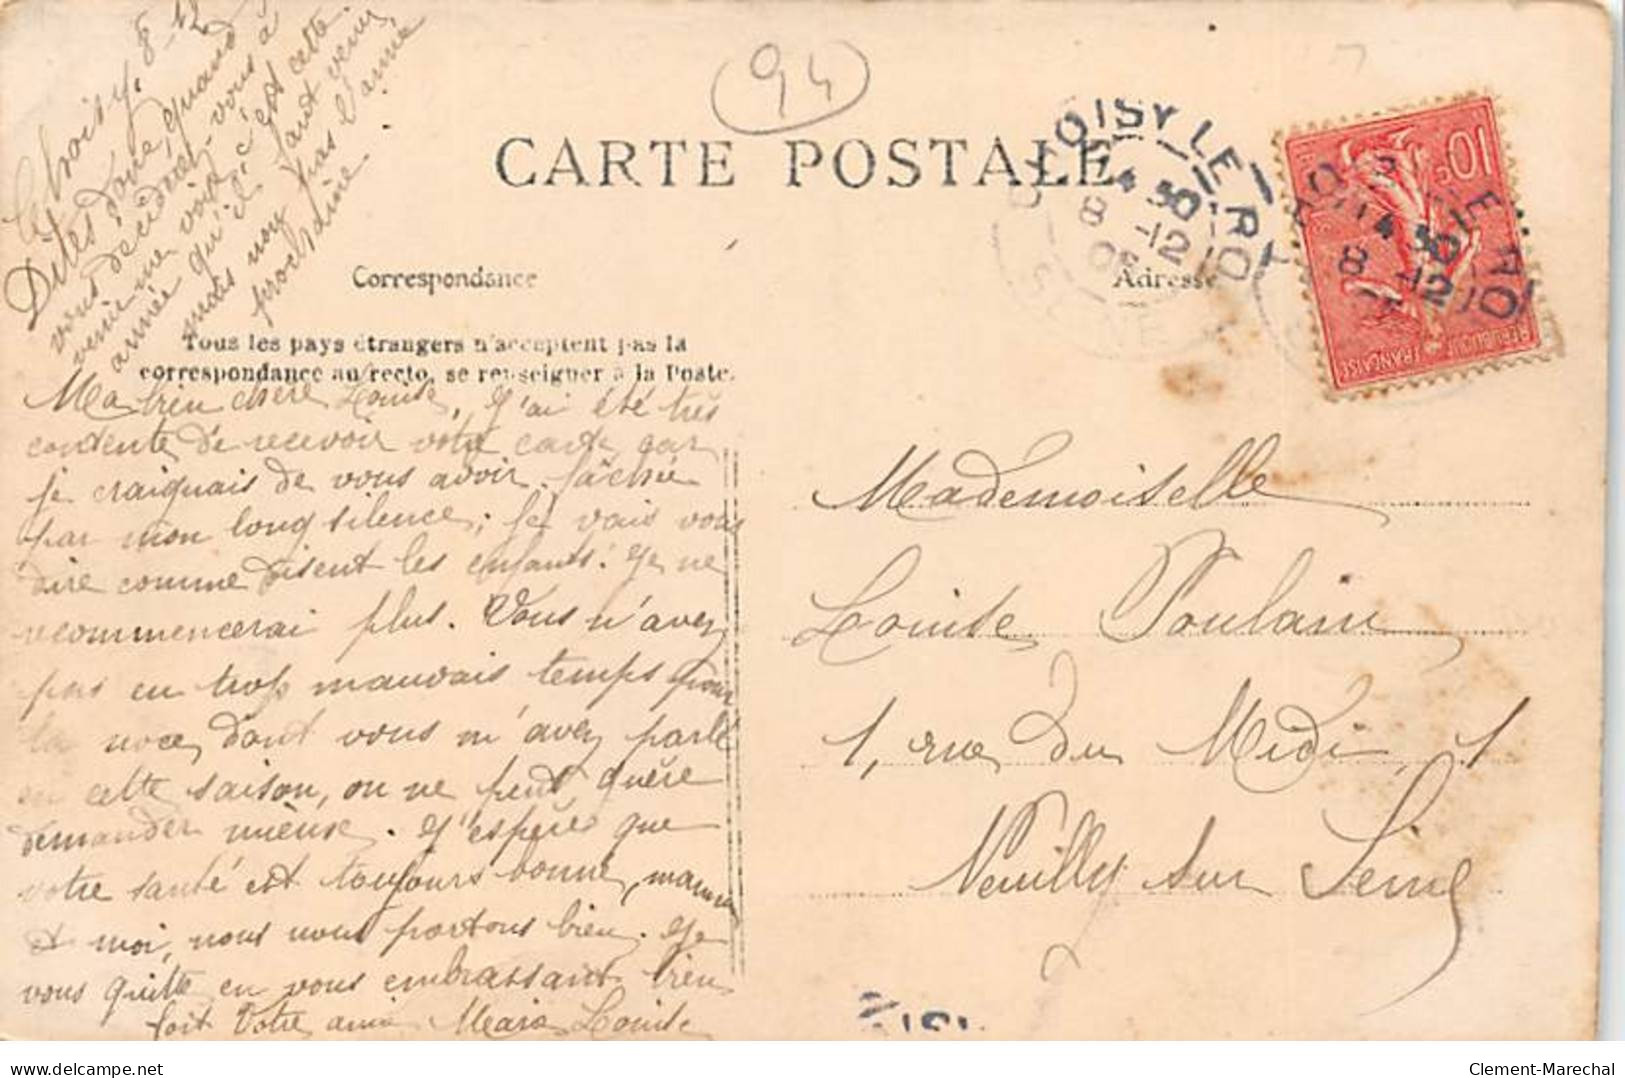 Choisy, 8-12
Dites donc, quand
vous déciderez-vous à
venir me voir, c'est cette
année qu'il faut venir
mais non pas l'année
prochaine
94
CARTE POSTALE
Correspondance
Adresse
Tous les pays étrangers n'acceptent pas la
correspondance au recto, se renseigner à la Poste.
CHOISY LE ROI
4 30
8 -12
SEINE
10c
REPUBLIQUE FRANÇAISE
Ma bien chère Louise, J'ai été très
contente de recevoir votre carte car
je craignais de vous avoir fâchée
par mon long silence; je vais vous
dire comme disent les enfants: je ne
recommencerai plus. Vous n'avez
pas eu trop mauvais temps pour
la noce, dont vous m'avez parlé
en cette saison, on ne peut guère
demander mieux. J'espère que
votre santé est toujours bonne, maman
et moi, nous nous portons bien. Je
vous quitte en vous embrassant bien
fort Votre amie Marie Louise
Mademoiselle
Louise Poulain
1, rue du Midi, 1
Neuilly sur Seine
delcampe.net
Clement-Marechal